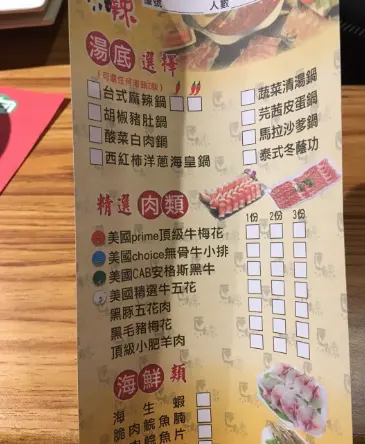 辣
人數
湯底選擇
台式麻辣鍋
蔬菜清湯鍋
胡椒豬肚鍋
芫茜皮蛋鍋
酸菜白肉鍋
馬拉沙爹鍋
西紅柿洋蔥海皇鍋
泰式冬蔭功
精選肉類
1份 2份 3份
美國prime頂級牛梅花
美國choice無骨牛小排
美國CAB安格斯黑牛
美國精選牛五花
黑豚五花肉
黑毛豬梅花
頂級小肥羊肉
海鮮類
海生蝦
脆肉鯇魚腩
魚片